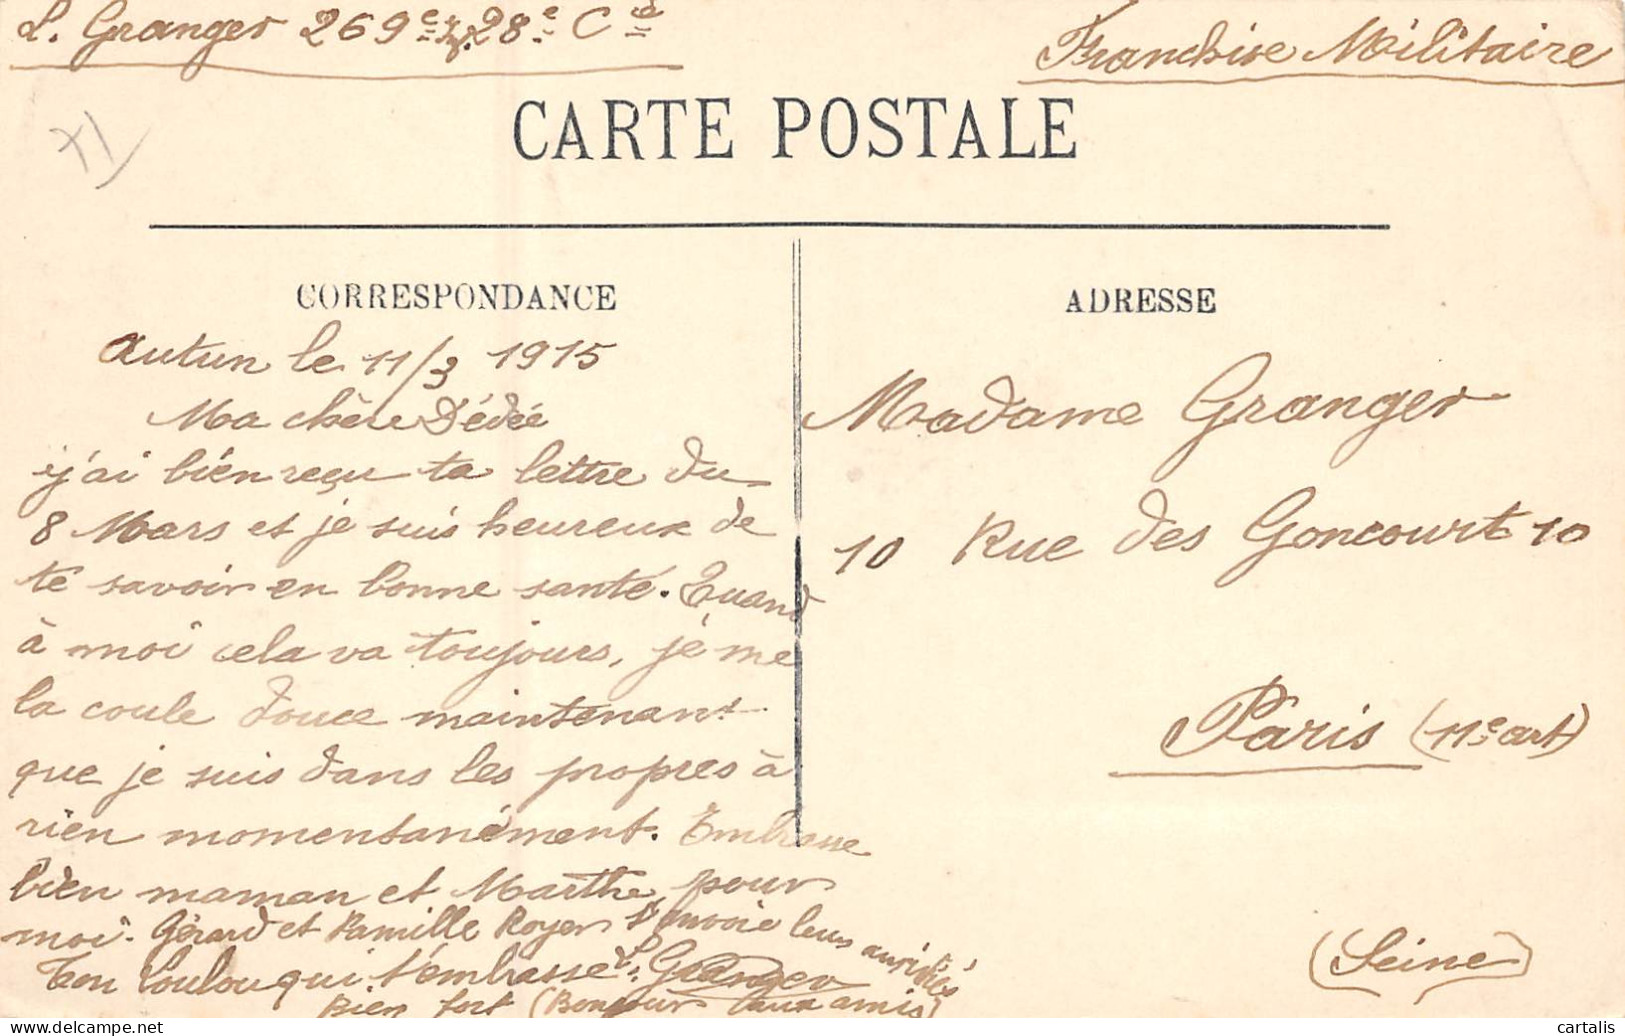 L. Granger 269e Inf. 28e Cie
Franchise Militaire
CARTE POSTALE
CORRESPONDANCE
ADRESSE
Autun le 11/3 1915
Ma chère Dédée
j'ai bien reçu ta lettre du
8 Mars et je suis heureux de
te savoir en bonne santé. Quand
à moi cela va toujours, je me
la coule douce maintenant
que je suis dans les propres à
rien momentanément. Embrasse
bien maman et Marthe pour
moi. Gérard et Famille Royer t'envoie leurs amitiés
Ton Loulou qui t'embrasse L. Granger
Bien fort (Bonjour aux amis)
Madame Granger
10 Rue des Goncourt 10
Paris (11e arrt)
(Seine)
cartalis
www.delcampe.net